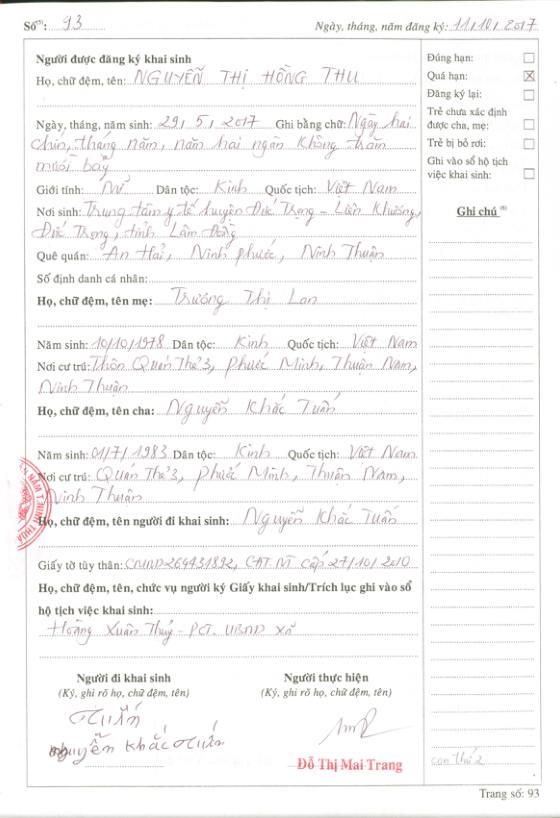 Số⁽⁵⁾: 93 Ngày, tháng, năm đăng ký: 11/10/2017
Người được đăng ký khai sinh
Họ, chữ đệm, tên: NGUYỄN THỊ HỒNG THU
Ngày, tháng, năm sinh: 29/5/2017 Ghi bằng chữ: Ngày hai
chín, tháng năm, năm hai ngàn không trăm
mười bảy
Giới tính: Nữ Dân tộc: Kinh Quốc tịch: Việt Nam
Nơi sinh: Trung tâm y tế huyện Đức Trọng - Liên Khương,
Đức Trọng, tỉnh Lâm Đồng
Quê quán: An Hải, Ninh Phước, Ninh Thuận
Số định danh cá nhân:
Họ, chữ đệm, tên mẹ: Trương Thị Lan
Năm sinh: 10/10/1978 Dân tộc: Kinh Quốc tịch: Việt Nam
Nơi cư trú: Thôn Quán Thẻ 3, Phước Minh, Thuận Nam,
Ninh Thuận
Họ, chữ đệm, tên cha: Nguyễn Khắc Tuấn
Năm sinh: 01/7/1983 Dân tộc: Kinh Quốc tịch: Việt Nam
Nơi cư trú: Quán Thẻ 3, Phước Minh, Thuận Nam,
Ninh Thuận
Họ, chữ đệm, tên người đi khai sinh: Nguyễn Khắc Tuấn
Giấy tờ tùy thân: CMND 264431892, CAT. NT cấp 27/10/2010
Họ, chữ đệm, tên, chức vụ người ký Giấy khai sinh/Trích lục ghi vào sổ
hộ tịch việc khai sinh:
Hoàng Xuân Thúy - PCT. UBND xã
Người đi khai sinh
(Ký, ghi rõ họ, chữ đệm, tên)
Tuấn
Nguyễn Khắc Tuấn
Người thực hiện
(Ký, ghi rõ họ, chữ đệm, tên)
Đỗ Thị Mai Trang
Đúng hạn:
Quá hạn: ☒
Đăng ký lại:
Trẻ chưa xác định
được cha, mẹ:
Trẻ bị bỏ rơi:
Ghi vào sổ hộ tịch
việc khai sinh:
Ghi chú ⁽⁶⁾
con thứ 2
Trang số: 93